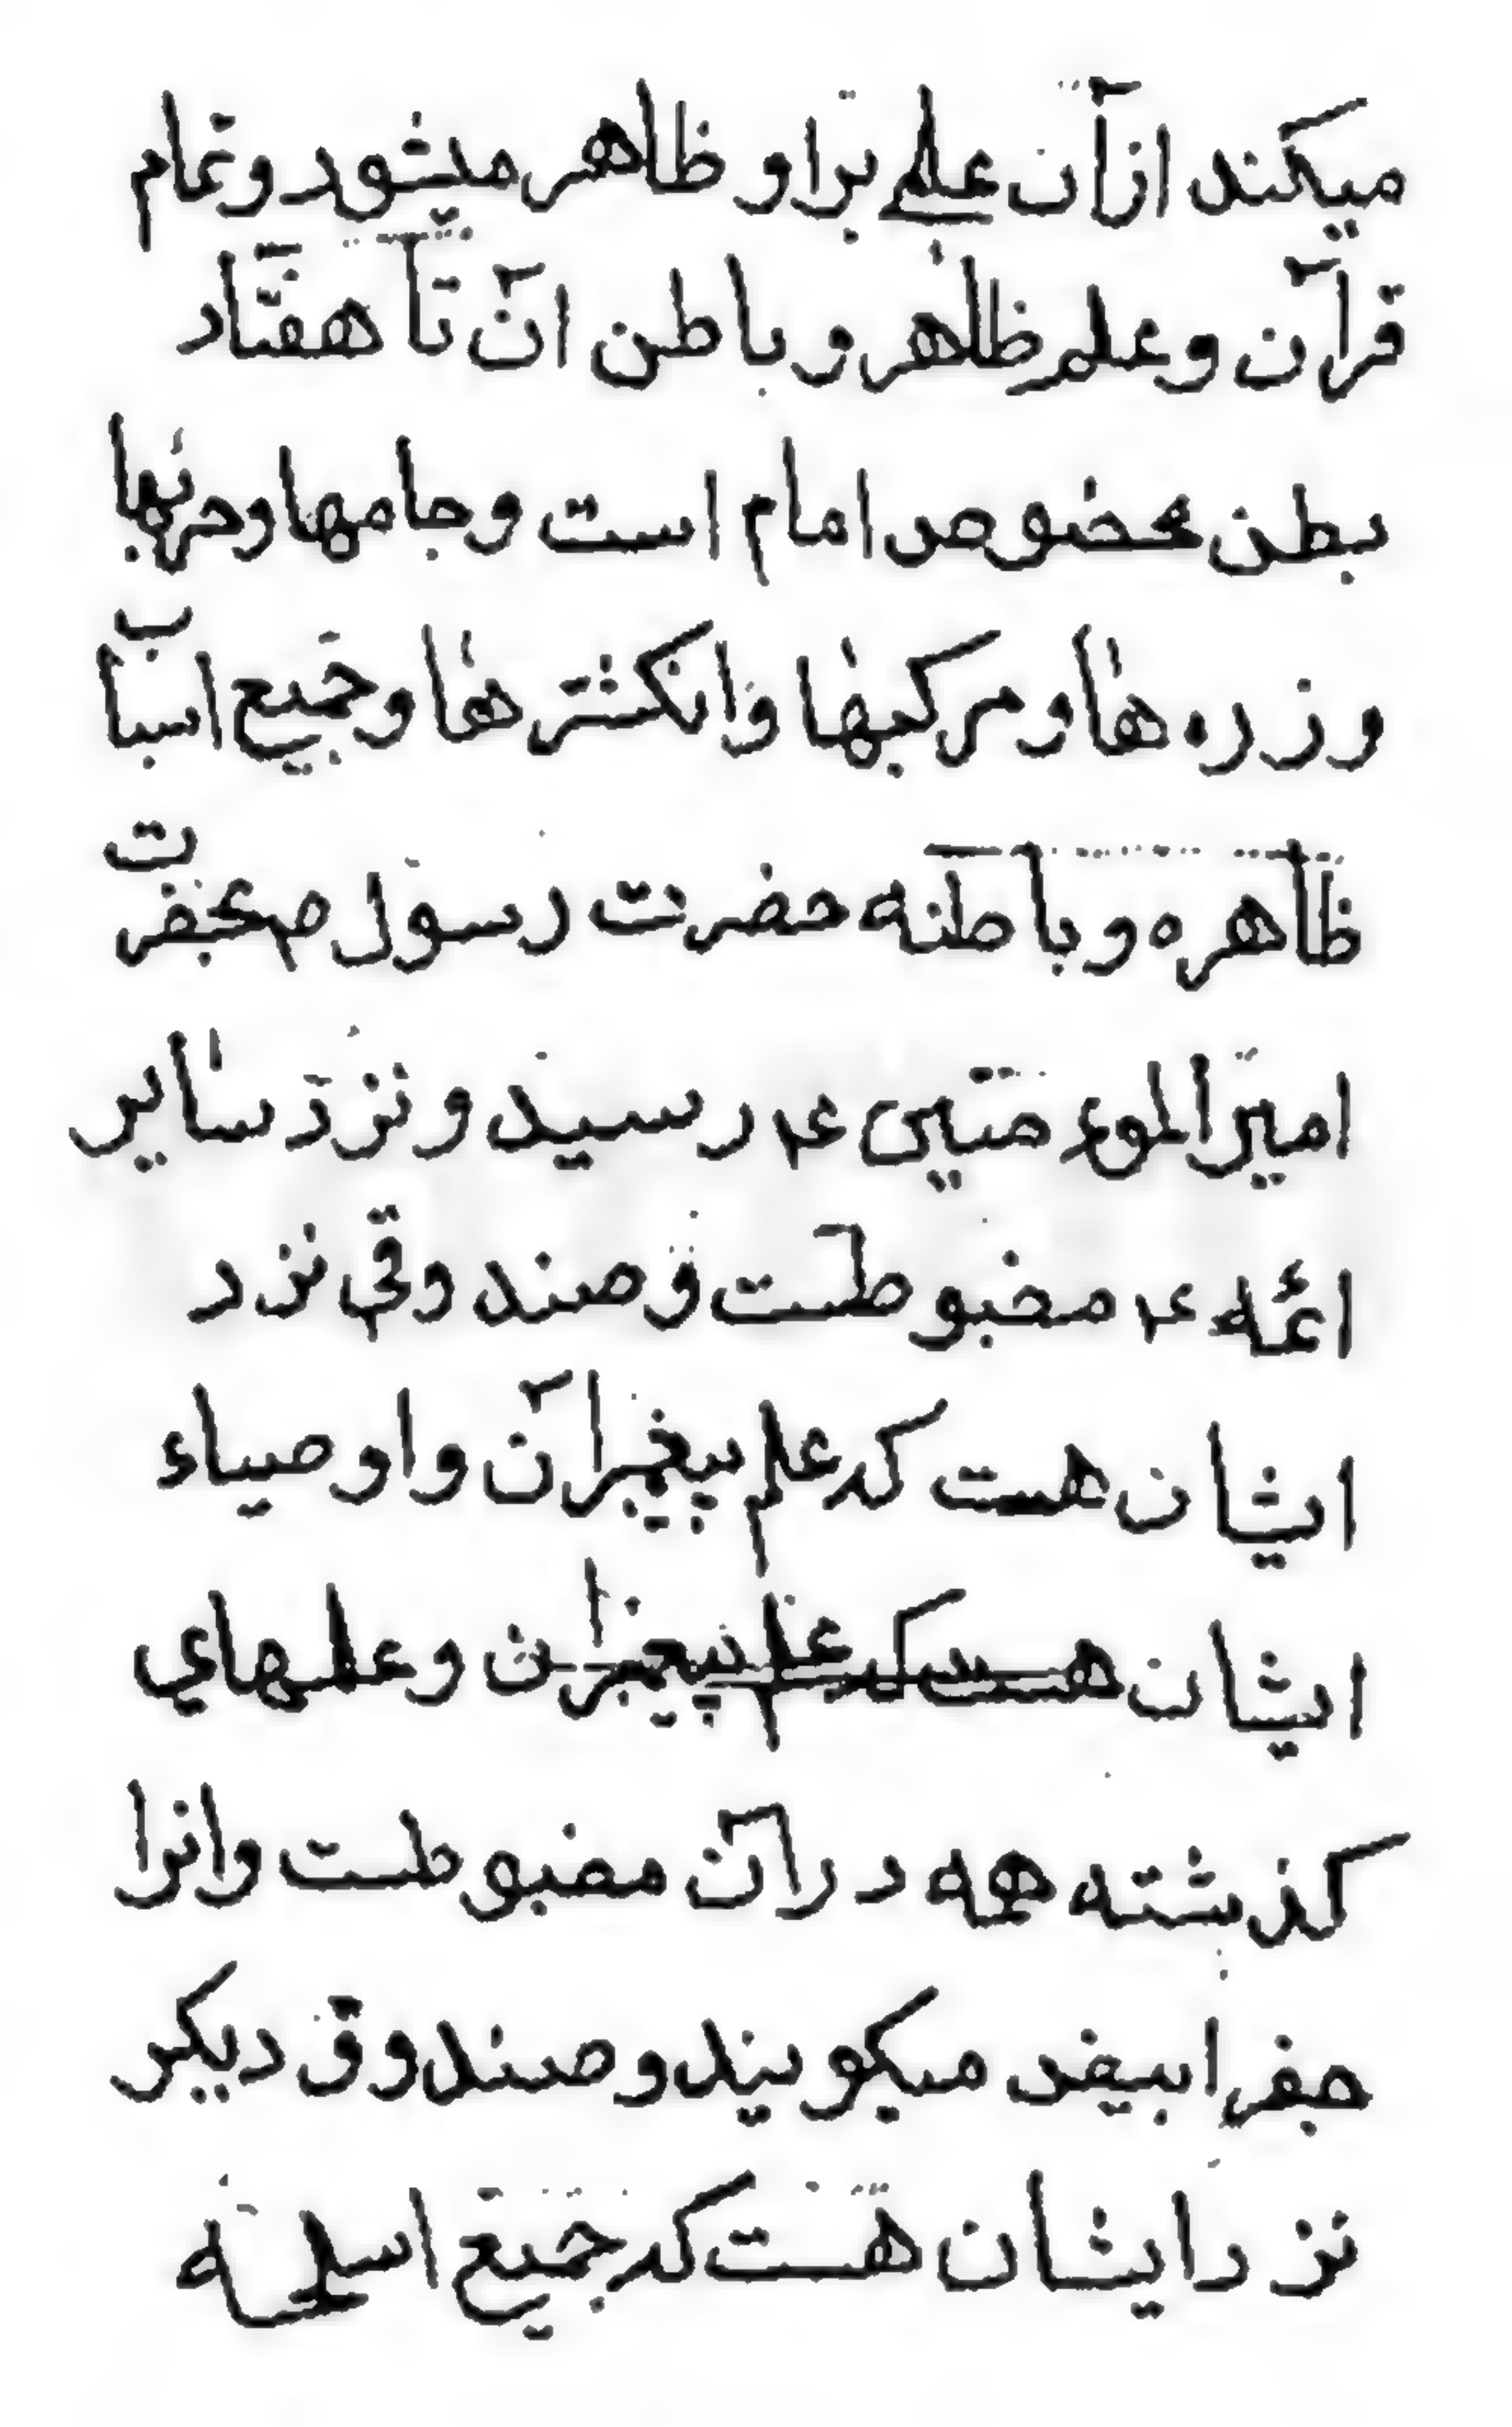 میکند ازآن علمے براو ظاهر میشود وتمام
قرآن وعلم ظاهر وباطن انّ تا هفتاد
بطن مخصوص امام است وجامها وحربها
وزره ها ومرکبها وانکشترها وجمیع اسباب
ظاهره وباطنه حضرت رسول ص بحضرت
امیرالموءمنین ع رسید ونزد سایر
ائمه ع مضبوطست وصندوقی نزد
ایشان هست که علم پیغمبرآن واوصیاء
ایشان هست که علم پیغمبران وعلمهاي
کذشته همه درآن مضبوطست وانرا
جفر ابیض میکویند وصندوق دیکر
نزد ایشان هست که جمیع اسلحه